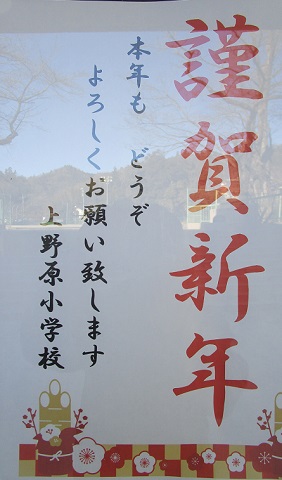 謹賀新年
本年も どうぞ
よろしくお願い致します
上野原小学校